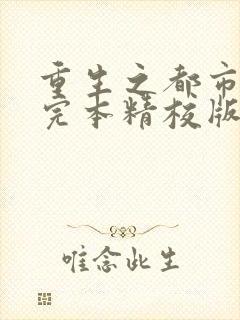 重生之都市
完本精校版
唯念此生